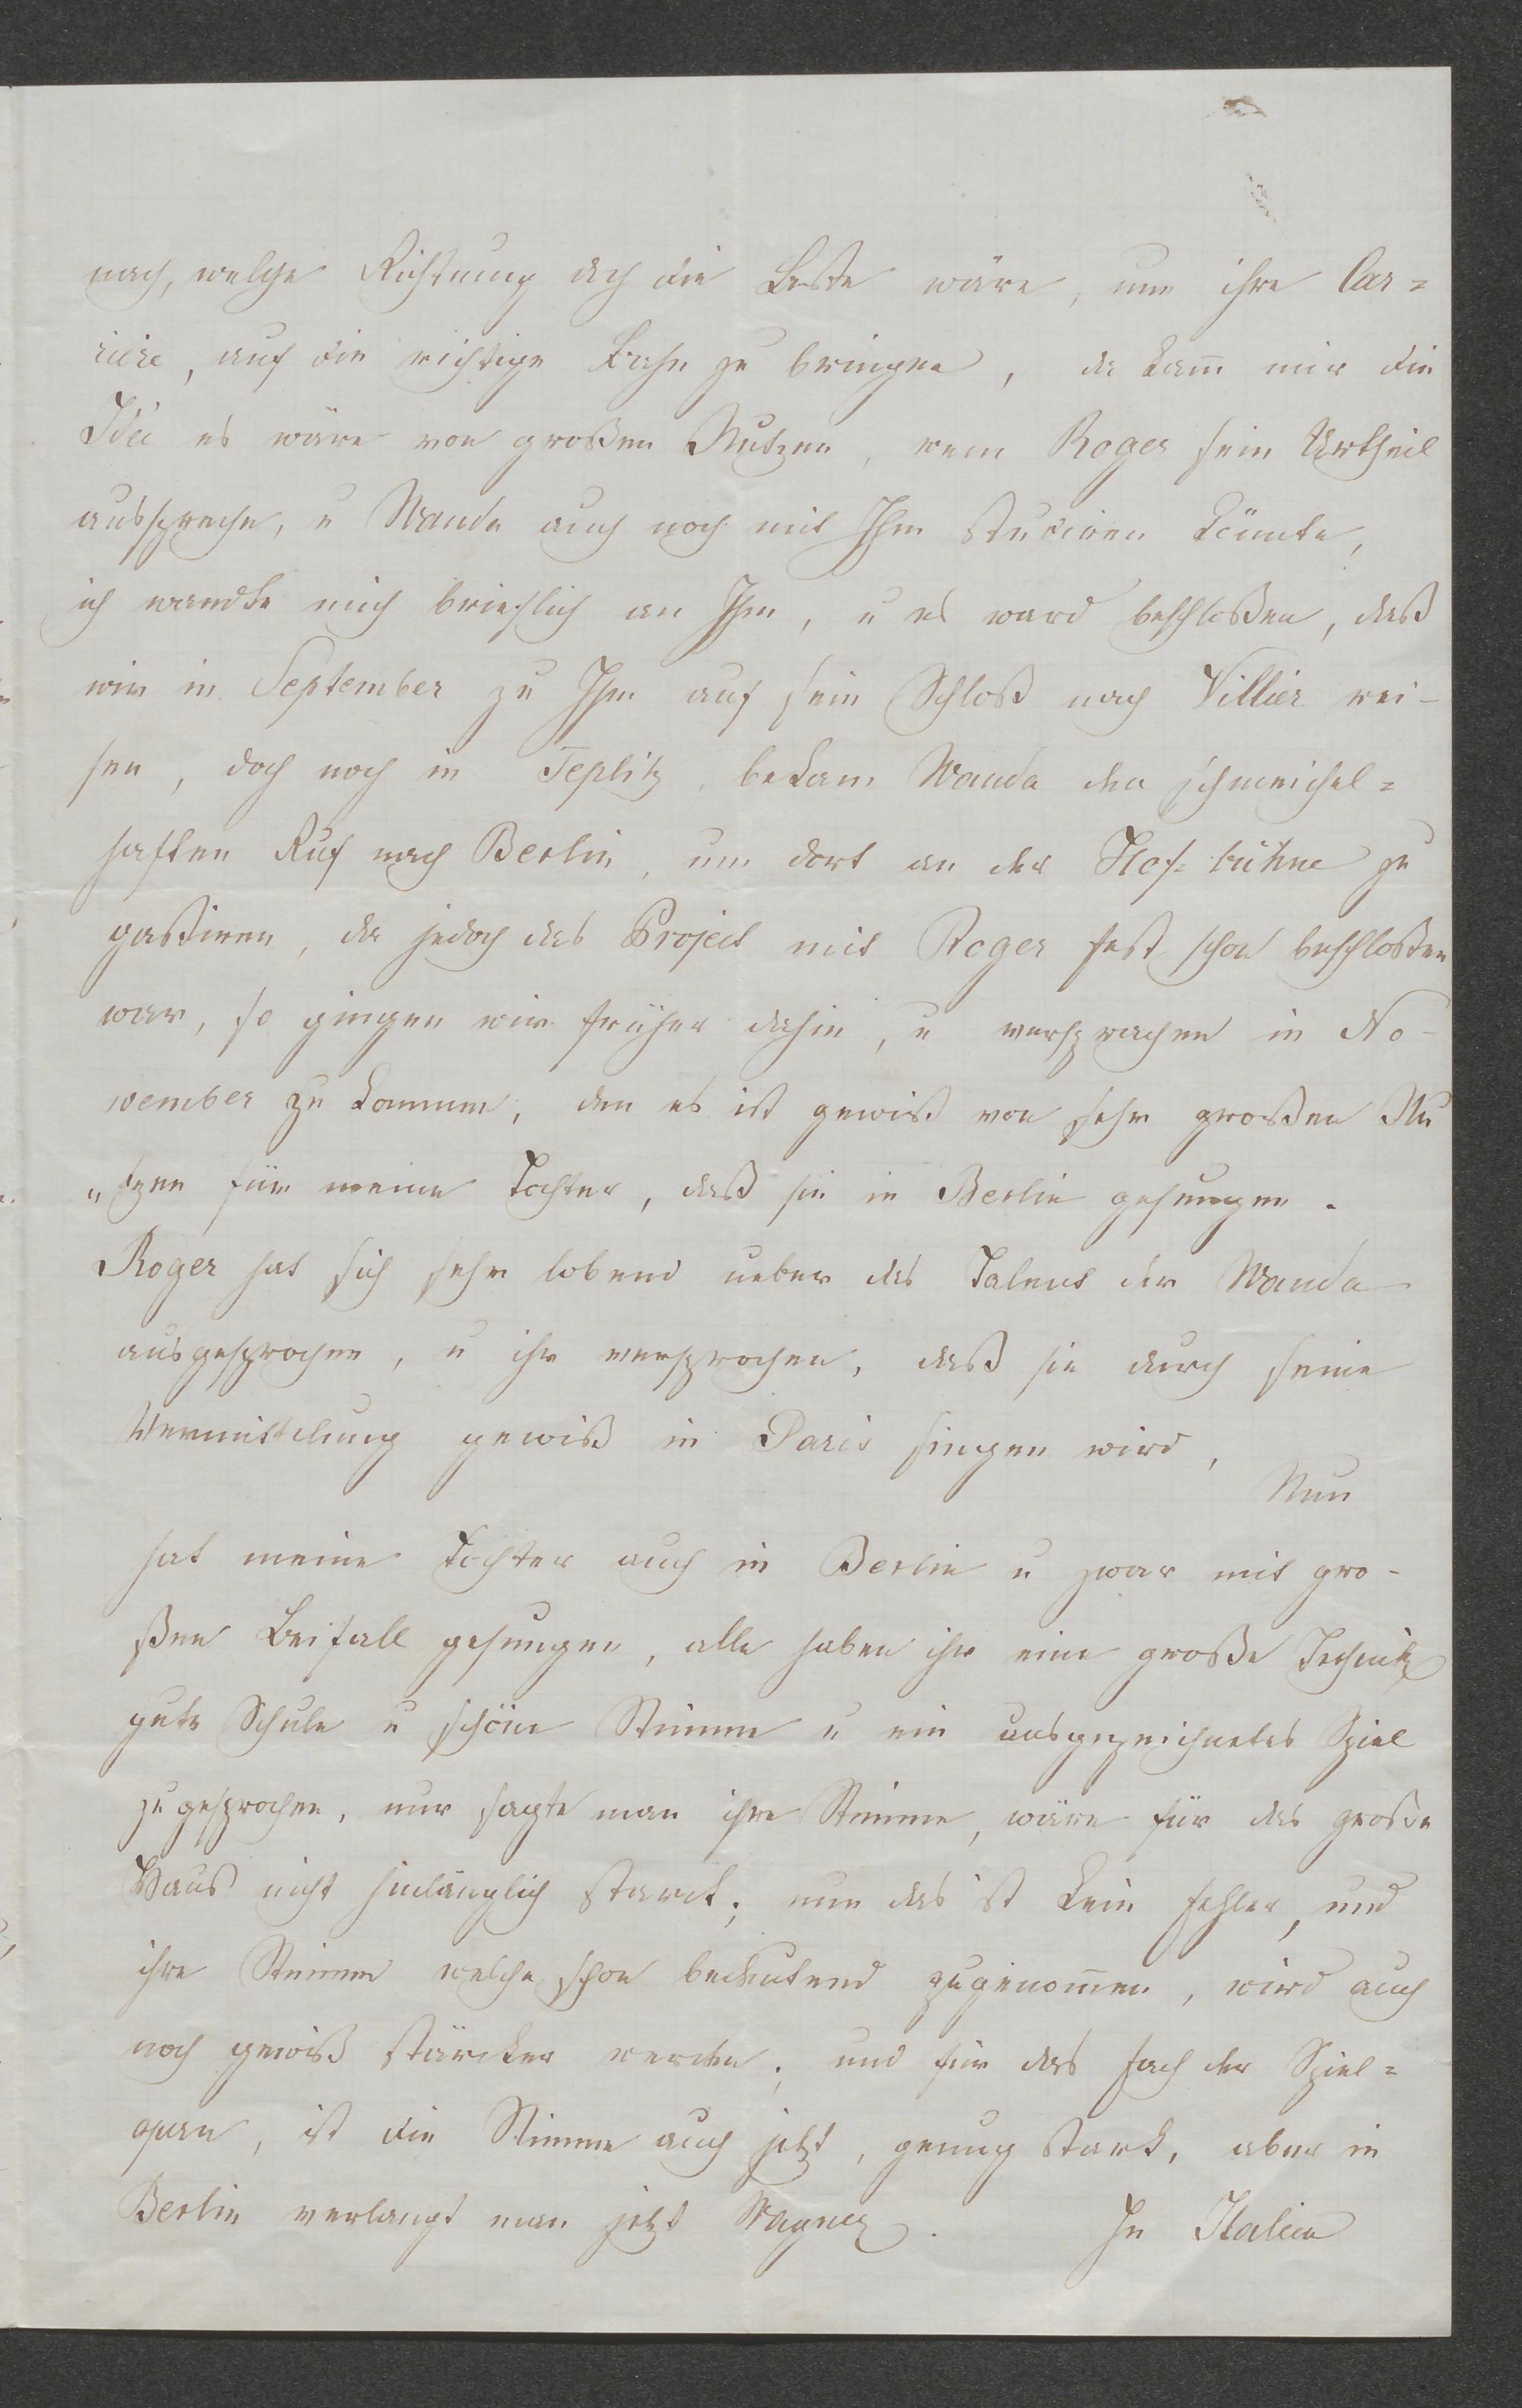 nach, welche Richtung doch die Beste wäre, um ihre Car=
riere, auf die richtige Bahn zu bringen, da kam̄ mir die
Idée es wäre von großen Nutzen, wenn Roger sein Urtheil
ausspreche, u Wanda auch noch mit Ihm studieren könnte,
ich wandte mich brieflich an Ihm, u es ward beschloßen, daß
wir in September zu Ihm auf sein Schloß nach Villier rei-
sen, doch noch in Teplitz, bekam Wanda den schmeichel=
haften Ruf nach Berlin, um dort an der Hof=bühne zu
gastiren, da jedoch das Project mit Roger fest schon beschloßen
war, so gingen wir früher dahin, u versprachen in No-
vember zu kommen, den es ist gewiß von sehr großen Nu
„tzen für meine Tochter, daß sie in Berlin gesungen.
Roger hat sich sehr lobend ueber das Talent der Wanda
ausgesprochen, u ihr versprochen, daß sie durch seine
Vermittlung gewiß in Paris singen wird,
Nun
hat meine Tochter auch in Berlin u zwar mit gro-
ßen Beifall gesungen, alle haben ihr eine große Technik
gute Schule u schöne Stimme u ein ausgezeichnetes Spiel
zugesprochen, nur sagte man ihre Stimme, wäre für das große
Haus nicht hinlänglich starck; nun das ist kein Fehler, und
ihre Stimme welche schon bedeutend zugenom̄en, wird auch
noch gewiß stärcker werden; und für das Fach der Spiel=
opern, ist die Stimme auch jetzt, genug stark, aber in
Berlin verlangt man jetzt Wagner. In Italien